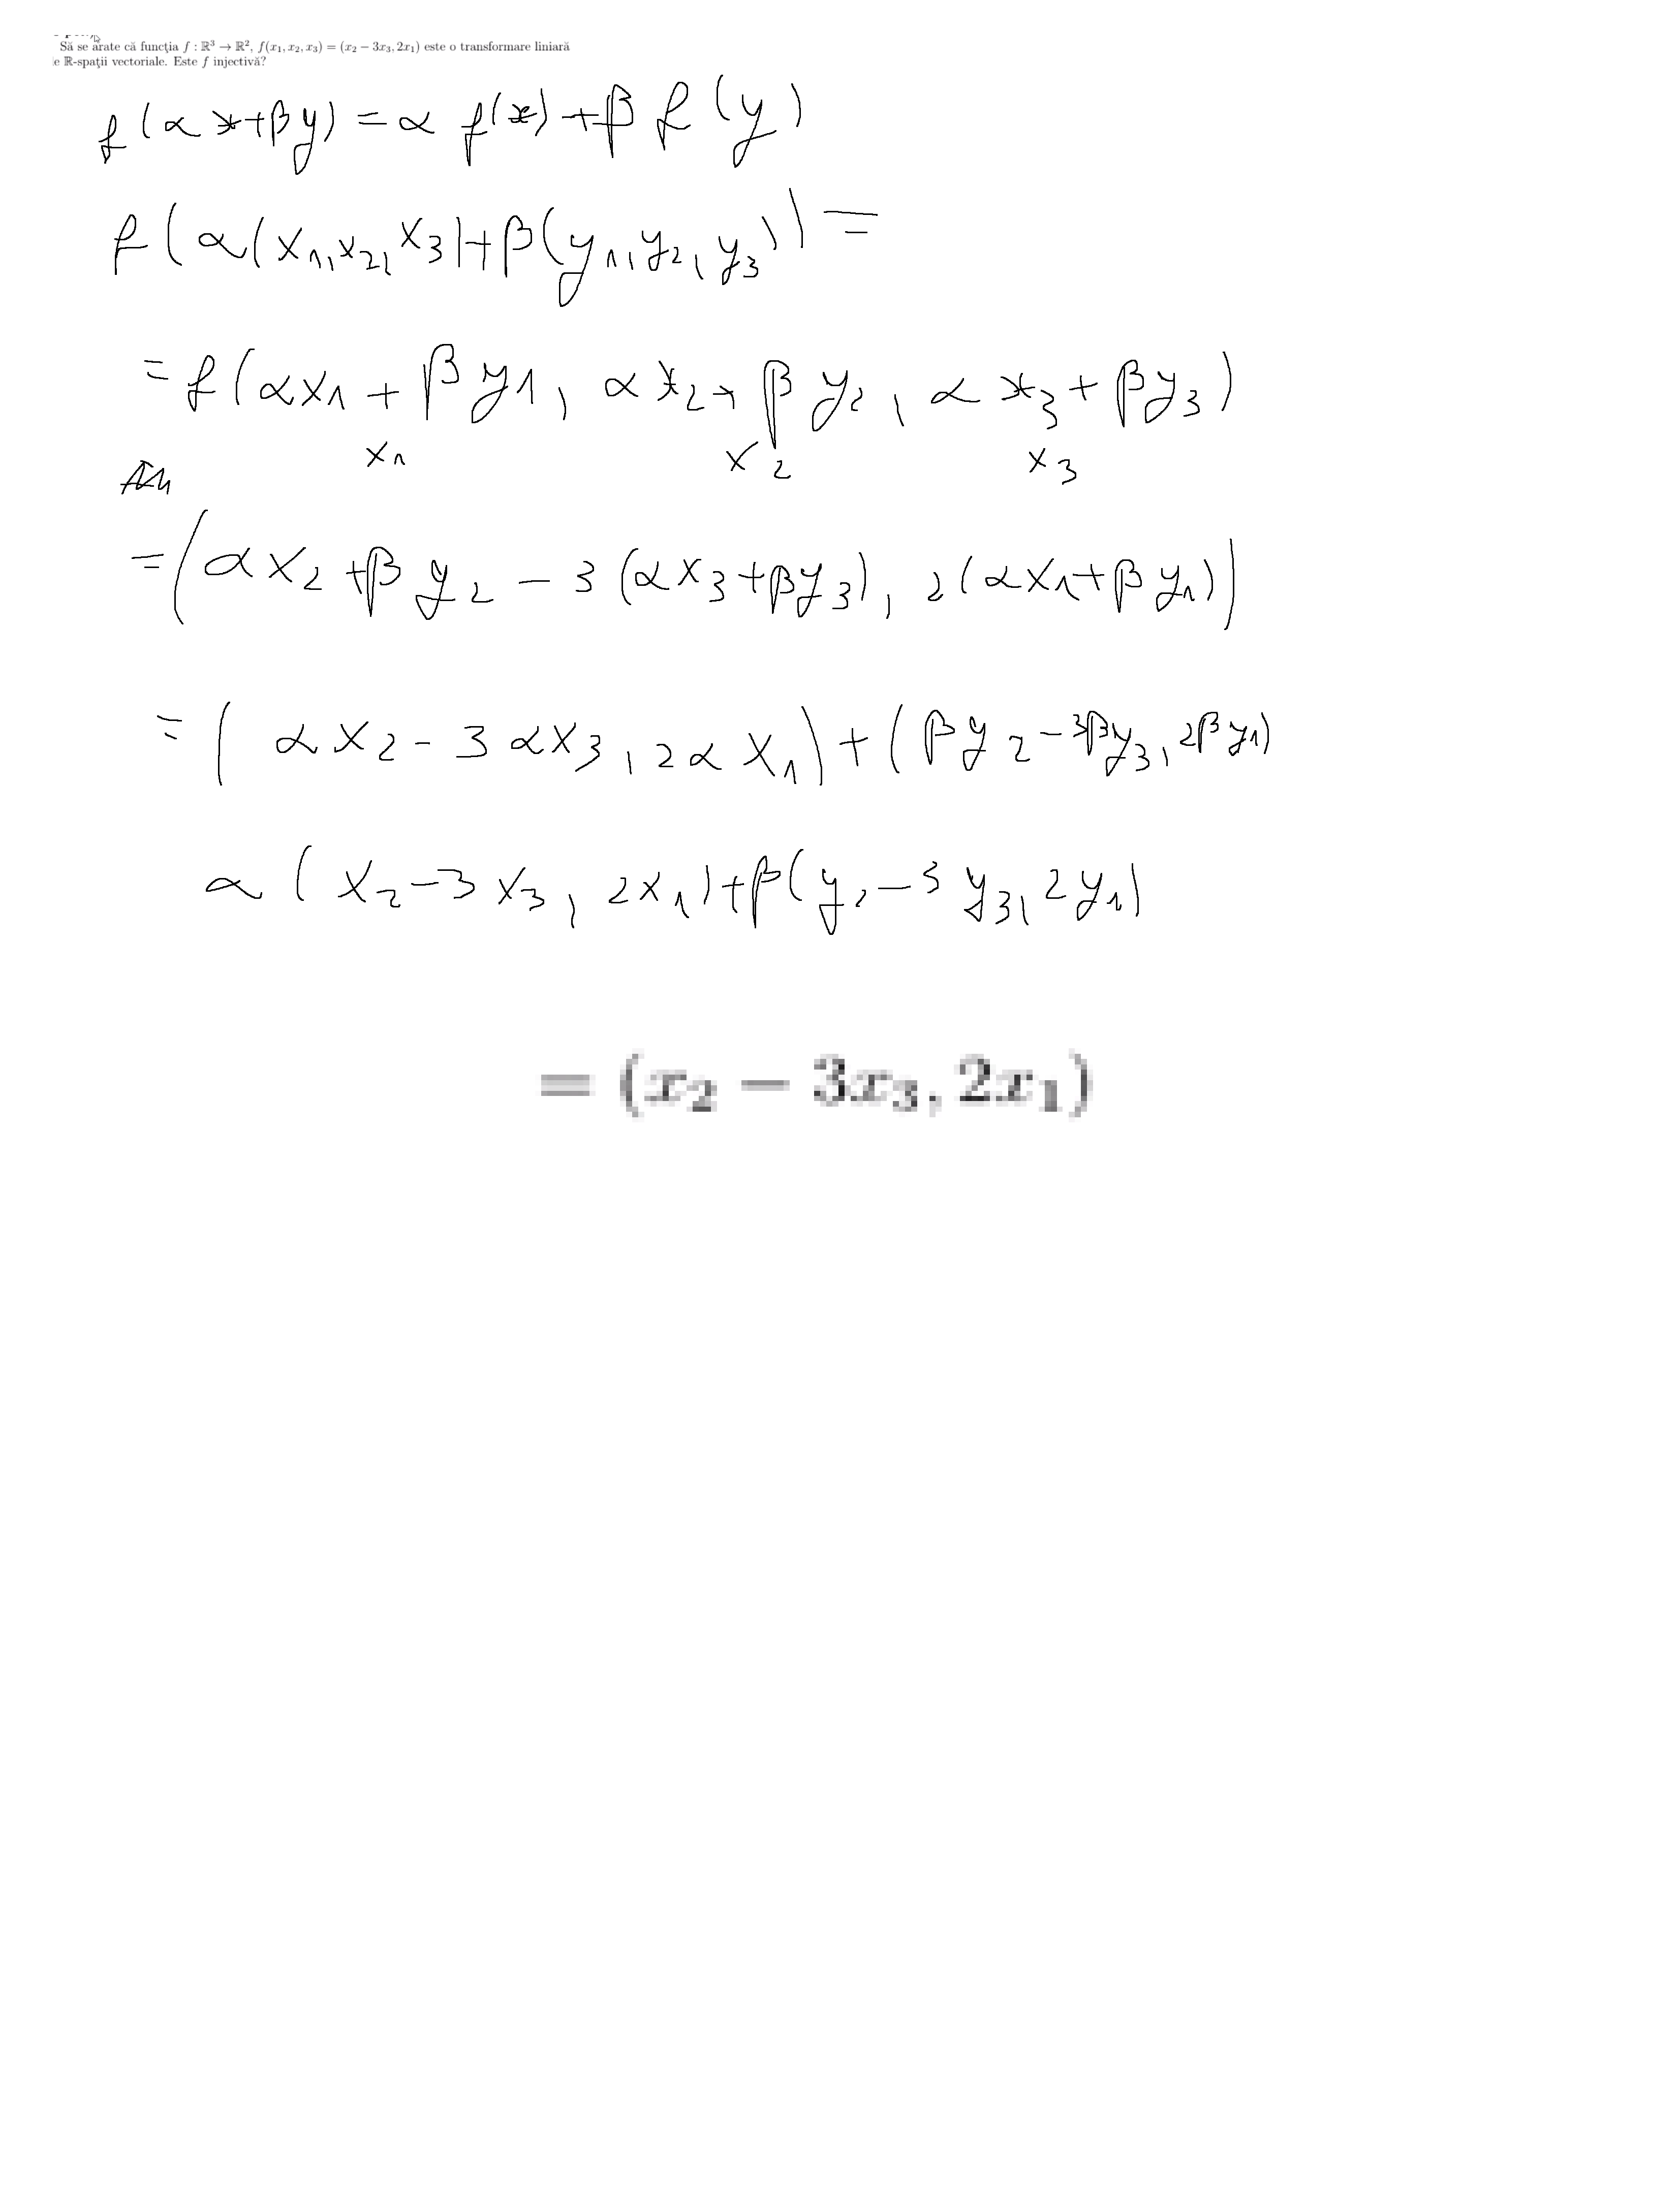 Să se arate că funcţia f : ℝ³ → ℝ², f(x₁, x₂, x₃) = (x₂ − 3x₃, 2x₁) este o transformare liniară
e ℝ-spaţii vectoriale. Este f injectivă?
f(αx+βy) = α f(x) + β f(y)
f(α(x₁,x₂,x₃)+β(y₁,y₂,y₃)) =
= f(αx₁ + βy₁, αx₂ + βy₂, αx₃ + βy₃)
x₁ x₂ x₃
= (αx₂ + βy₂ − 3(αx₃+βy₃), 2(αx₁+βy₁))
= (αx₂ − 3αx₃, 2αx₁) + (βy₂ − 3βy₃, 2βy₁)
α(x₂−3x₃, 2x₁)+β(y₂−3y₃, 2y₁)
= (x₂ − 3x₃, 2x₁)